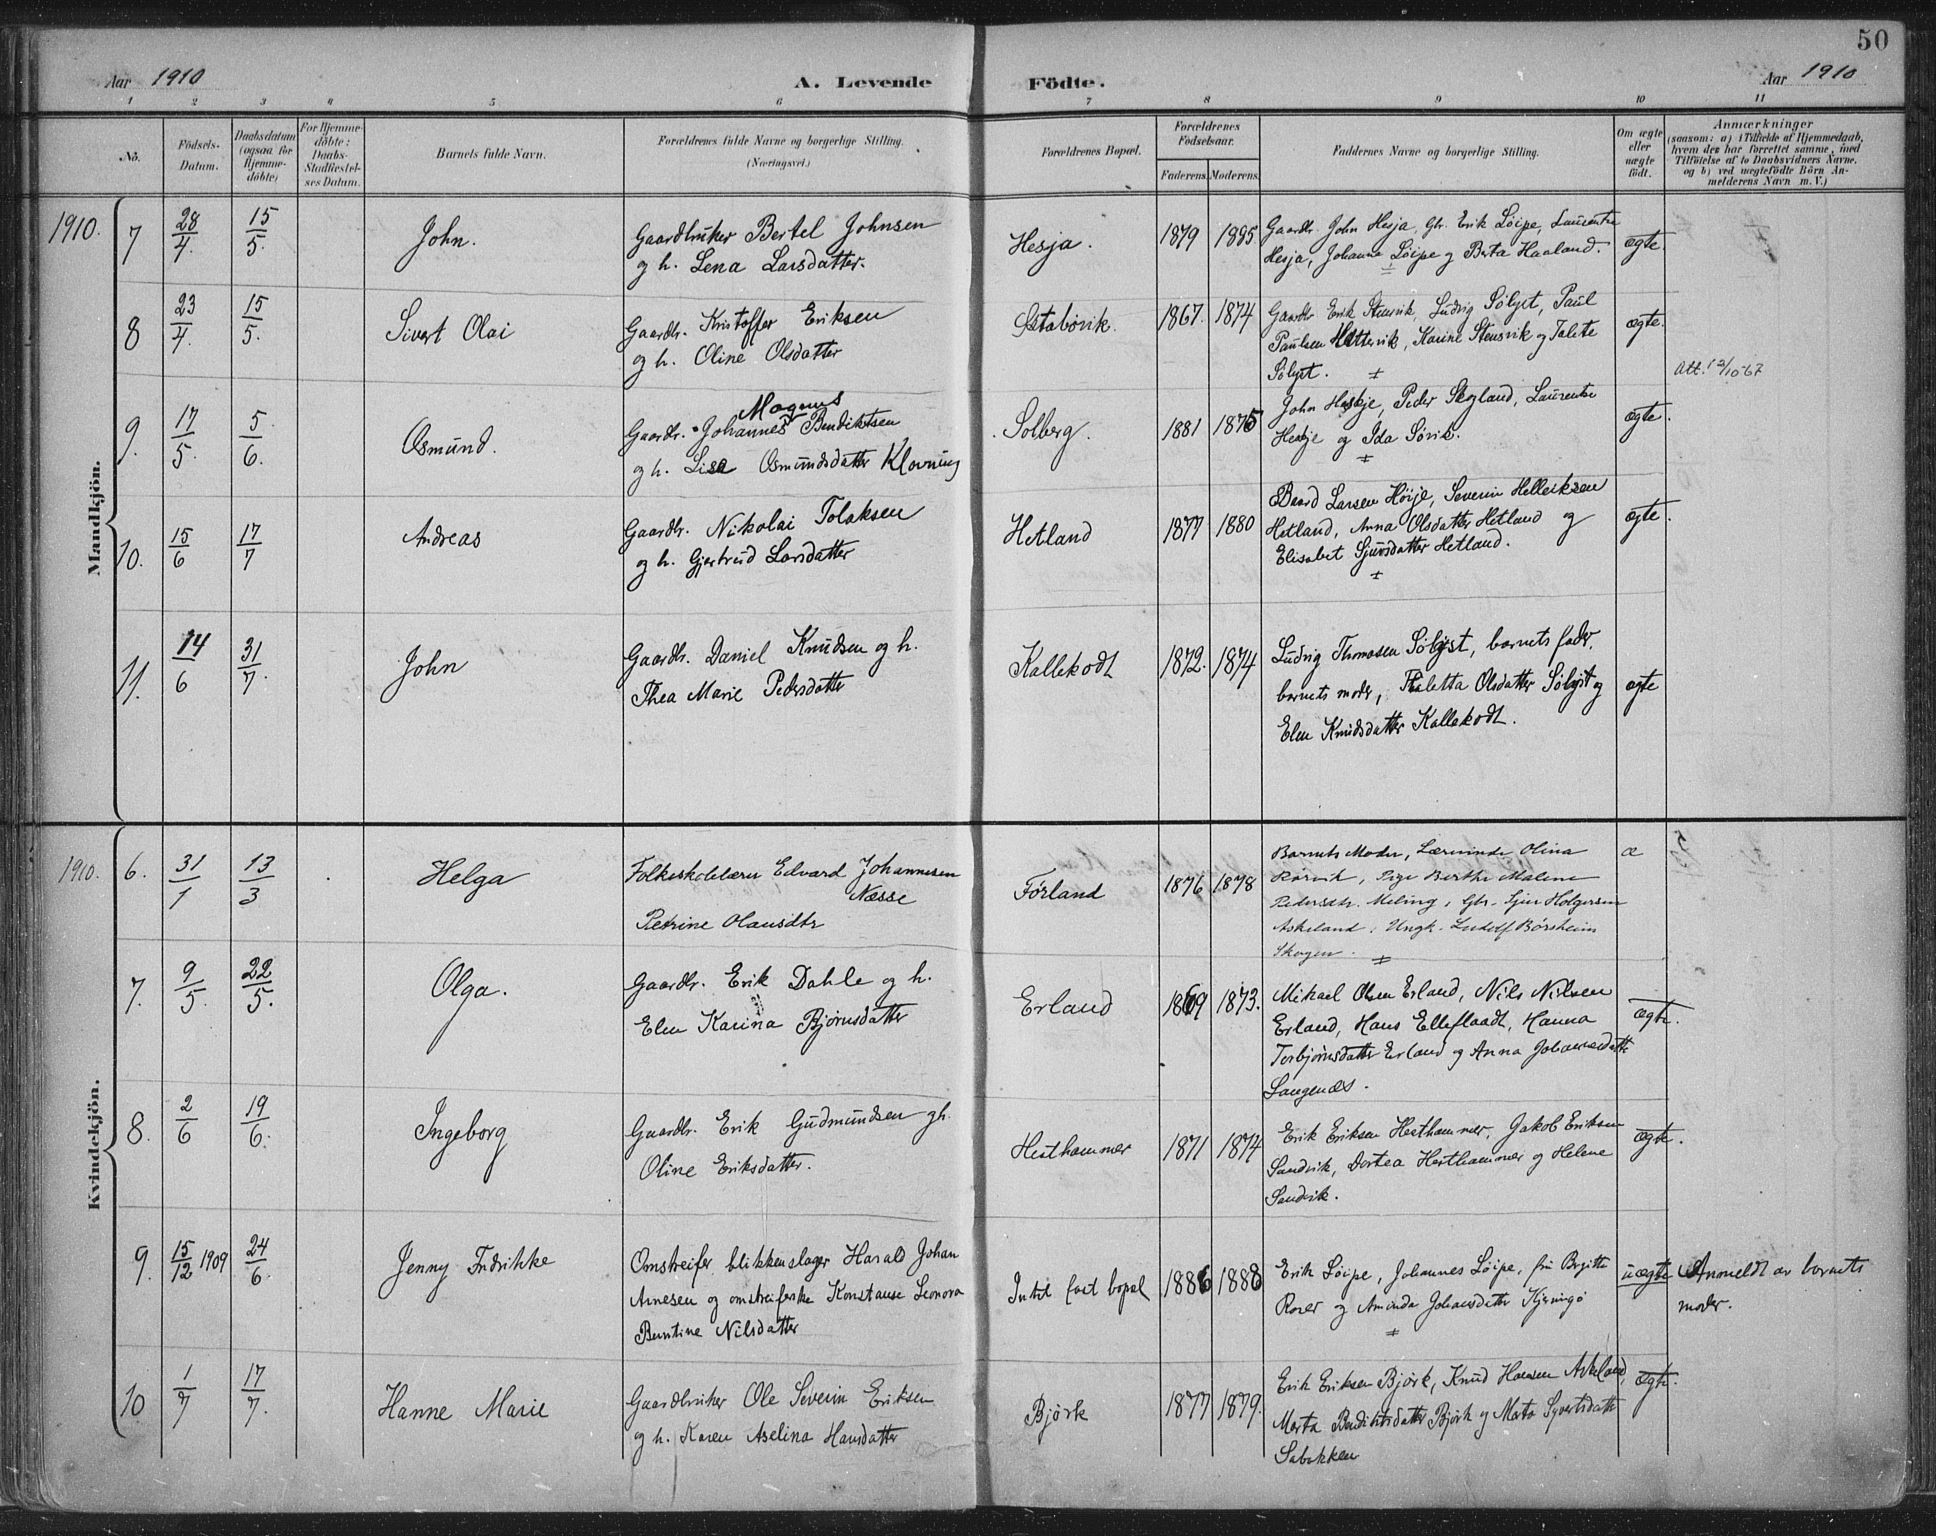 50
Aar 1910
A. Levende Födte.
Aar 1910
1 2 3 4 5 6 7 8 9 10 11
No.
Födsels-
Datum.
Daabsdatum
(ogsaa for
Hjemme-
döbte)
For Hjemme-
döbte:
Daabs-
Stadfæstel-
ses Datum.
Barnets fulde Navn.
Forældrenes fulde Navne og borgerlige Stilling.
(Næringsvei.)
Forældrenes Bopæl.
Forældrenes
Födselsaar.
Faderens. Moderens.
Faddernes Navne og borgerlige Stilling.
Om ægte
eller
uægte
født.
Anmærkninger
(saasom: a) i Tilfælde af Hjemmedaab,
hvem der har forrettet samme, med
Tilföielse af to Daabsvidners Navne,
og b) ved uægtefödte Börn An-
melderens Navn m. V.)
Mandkjön.
1910. 7 28/4. 15/5. John.
Gaardbruker Bertel Johnsen
og h. Lena Larsdatter.
Hesja. 1879 1885
Gaardbr. John Hesja, Gbr. Erik Løipe, Laurentse
Hesja, Johanna Løipe og Berta Haaland.
ægte.
8 23/4. 15/5. Sivert Olai
Gaardbr. Kristoffer Eriksen
og h. Oline Olsdatter
1867. 1874
Gaardbr Erik Stensvik, Ludvig Sølyst, Paul
Paulsen Hettervik, Karine Stensvik og Talete
Sølyst.
ægte.
Att. 12/10-67
9. 17/5. 5/6. Osmund.
Mogens
Gaardbr. Johannes Bendiktsen
og h. Lisa Osmundsdatter Klovning
Solberg. 1881 1875
John Heskje, Peder Skogland, Laurentse
Heskje og Ida Sørvik.
ægte.
10. 15/6 17/7 Andreas
Gaardbr. Nikolai Tolaksen
og h. Gjertrud Larsdatter
Hetland 1877 1880
Beard Larsen Høije, Severin Helleiksen
Hetland, Anna Olsdatter Hetland og
Elisabet Sjursdatter Hetland.
ægte.
11. 14/6 31/7. John
Gaardbr. Daniel Knudsen og h.
Thea Marie Pedersdatter
Kallekodt 1872. 1874
Ludvig Thomasen Sølyst, barnets fader,
barnets moder, Thaletta Olsdatter Sølyst og
Elen Knudsdatter Kallekodt.
ægte
Kvindekjön.
1910. 6. 31/1 13/3 Helga
Folkeskolelærer Edvard Johannesen
Næsse
Petrine Hansdtr
Førland 1876 1878
Barnets Moder, Lærerinde Olina
Rørvik, Pige Berthe Malene
Pedersdtr. Meling, Gbr. Sjur Holgersen
Askeland, Ungk. Ludolf Børsheim
Skogen.
æ
7. 9/5. 22/5. Olga.
Gaardbr. Erik Dahle og h.
Elen Karina Bjørnsdatter
Erland 1869 1873.
Mikael Olsen Erland, Nils Nilsen
Erland, Hans Elleflaadt, Hanna
Torbjørnsdatter Erland og Anna Johannesdatter
Langenæs.
ægte.
8. 2/6 19/6. Ingeborg
Gaardbr. Erik Gudmundsen og h.
Oline Eriksdatter.
Hesthammer 1871 1874
Erik Eriksen Hesthammer, Jakob Eriksen
Sandvik, Dortea Hesthammer og Helene
Sandvik.
ægte.
9. 15/12 1909 24/6. Jenny Fredrikke
Omstreifer blikkenslager Harald Johan
Arnesen og omstreiferske Konstanse Leonora
Berntine Nilsdatter
Intet fast bopæl 1886 1888
Erik Løipe, Johannes Løipe, fru Birgitte
Roser og Aminda Johansdatter Kjerringø
uægte
Anmeldt av barnets
moder.
10 1/7 17/7. Hanne Marie
Gaardbruker Ole Severin Eriksen
og h. Karen Aselina Hansdatter
Bjørk 1877 1879.
Erik Eriksen Bjørk, Knud Hansen Askeland
Marta Bendiktsdatter Bjørk og Marta Syvertsdatter
Sabakken
ægte.